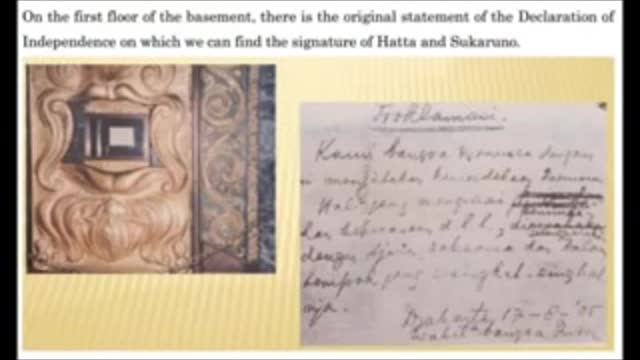 On the first floor of the basement, there is the original statement of the Declaration of
Independence on which we can find the signature of Hatta and Sukaruno.
Proklamasi.
Kami bangsa Indonesia dengan
menjatakan kemerdekaan
Hal² jang mengenai
d.l.l.,
dengan tjara saksama dan dalam
tempoh jang singkat-singkat
nja.
Djakarta, 17-8-'05
Wakil² bangsa